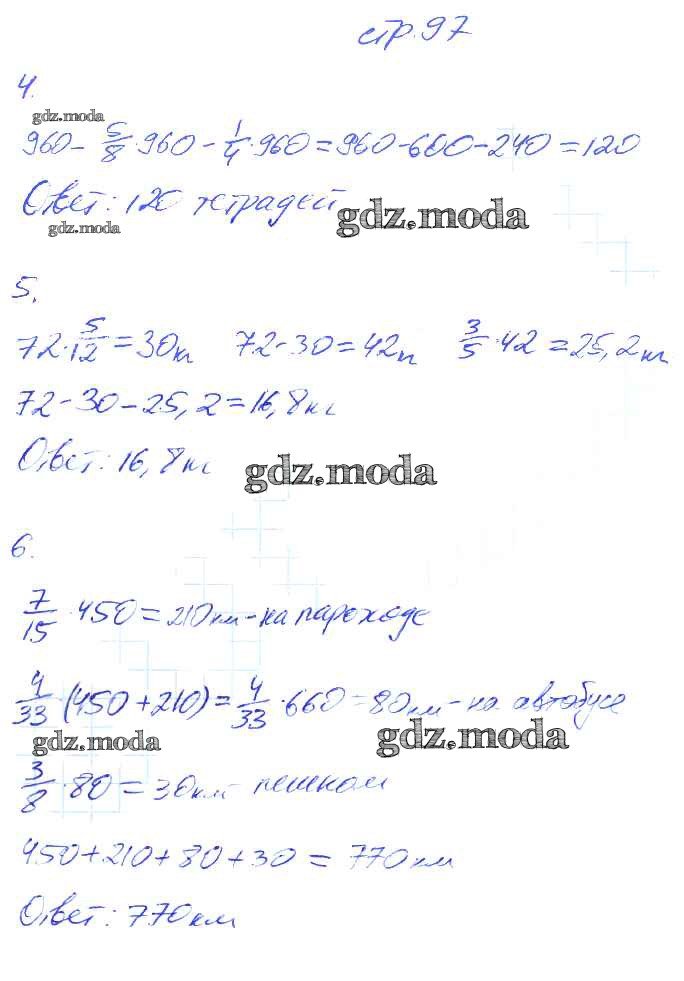 стр. 97
4.
gdz.moda
960 - 5/8 · 960 - 1/4 · 960 = 960 - 600 - 240 = 120
Ответ: 120 тетрадей
gdz.moda
gdz.moda
5.
72 · 5/12 = 30 кг 72 - 30 = 42 кг 3/5 · 42 = 25,2 кг
72 - 30 - 25,2 = 16,8 кг
Ответ: 16,8 кг
gdz.moda
6.
7/15 · 450 = 210 км - на пароходе
4/33 (450 + 210) = 4/33 · 660 = 80 км - на автобусе
gdz.moda
gdz.moda
3/8 · 80 = 30 км - пешком
450 + 210 + 80 + 30 = 770 км
Ответ: 770 км